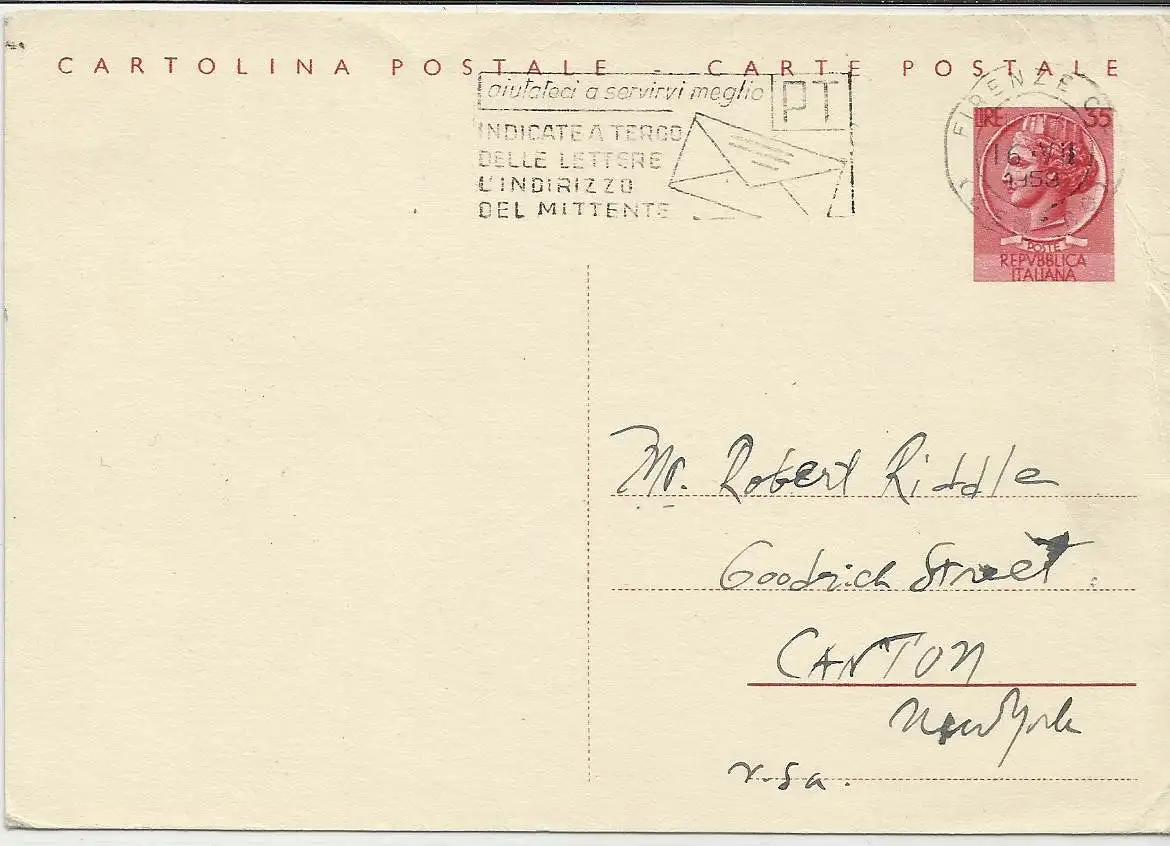 CARTOLINA POSTALE - CARTE POSTALE
aiutateci a servirvi meglio
PT
INDICATE A TERGO
DELLE LETTERE
L'INDIRIZZO
DEL MITTENTE
FIRENZE
16 VII
1959
LIRE 35
POSTE
REPVBBLICA
ITALIANA
Mr. Robert Riddle
Goodrich Street.
CANTON
New York
U.S.A.